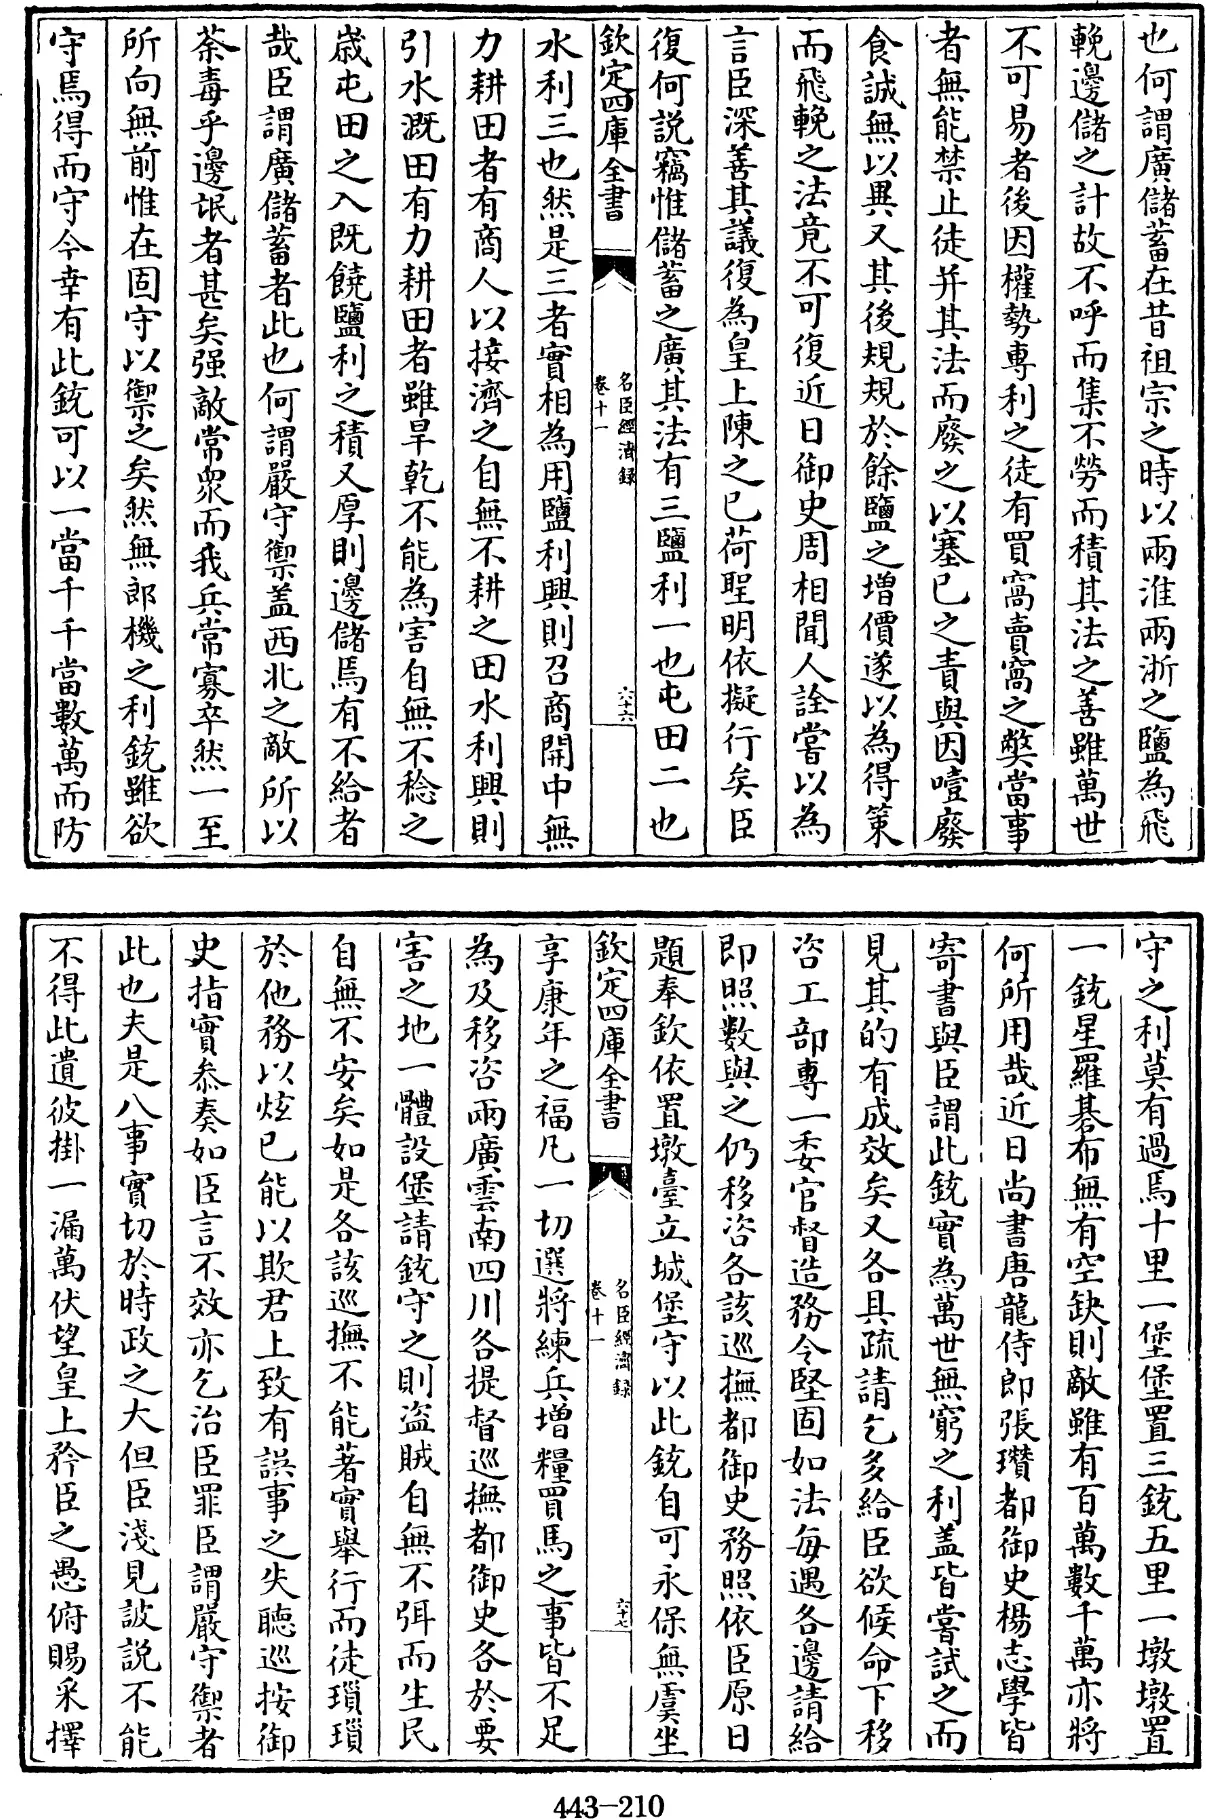 也何謂廣儲蓄在昔祖宗之時以兩淮兩浙之鹽為飛
輓邊儲之計故不呼而集不勞而積其法之善雖萬世
不可易者後因權勢專利之徒有買窩賣窩之弊當事
者無能禁止徒并其法而廢之以塞已之責與因噎廢
食誠無以異又其後規規於餘鹽之增價遂以為得策
而飛輓之法竟不可復近日御史周相聞人詮嘗以為
言臣深善其議復為皇上陳之已荷聖明依擬行矣臣
復何説竊惟儲蓄之廣其法有三鹽利一也屯田二也
欽定四庫全書
名臣經濟録
卷十一
六十六
水利三也然是三者實相為用鹽利興則召商開中無
力耕田者有商人以接濟之自無不耕之田水利興則
引水溉田有力耕田者雖旱乾不能為害自無不稔之
嵗屯田之入既饒鹽利之積又厚則邊儲焉有不給者
哉臣謂廣儲蓄者此也何謂嚴守禦盖西北之敵所以
荼毒乎邊氓者甚矣强敵常衆而我兵常寡卒然一至
所向無前惟在固守以禦之矣然無郎機之利銃雖欲
守焉得而守今幸有此銃可以一當千千當數萬而防
守之利莫有過焉十里一堡堡置三銃五里一墩墩置
一銃星羅碁布無有空缺則敵雖有百萬數千萬亦將
何所用哉近日尚書唐龍侍郎張瓚都御史楊志學皆
寄書與臣謂此銃實為萬世無窮之利盖皆嘗試之而
見其的有成效矣又各具疏請乞多給臣欲候命下移
咨工部專一委官督造務令堅固如法每遇各邊請給
即照數與之仍移咨各該巡撫都御史務照依臣原日
題奉欽依置墩臺立城堡守以此銃自可永保無虞坐
欽定四庫全書
名臣經濟録
卷十一
六十七
享康年之福凡一切選將練兵增糧買馬之事皆不足
為及移咨兩廣雲南四川各提督巡撫都御史各於要
害之地一體設堡請銃守之則盗賊自無不弭而生民
自無不安矣如是各該巡撫不能著實舉行而徒瑣瑣
於他務以炫已能以欺君上致有誤事之失聽巡按御
史指實叅奏如臣言不效亦乞治臣罪臣謂嚴守禦者
此也夫是八事實切於時政之大但臣淺見詖説不能
不得此遺彼掛一漏萬伏望皇上矜臣之愚俯賜采擇
443-210